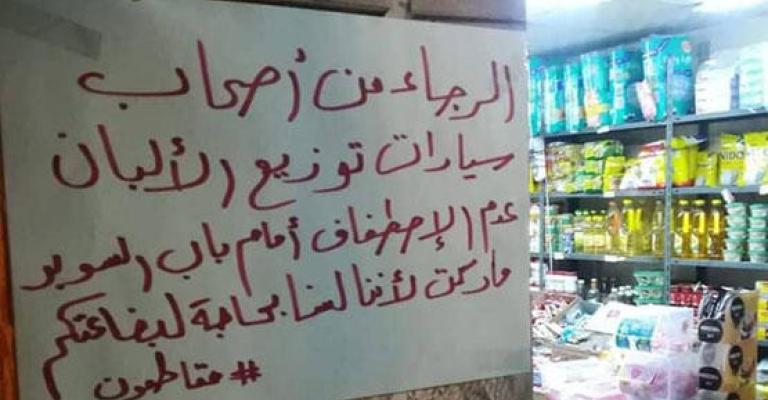 الرجاء من أصحاب
سيارات توزيع الألبان
عدم الإصطفاف أمام باب السوبر
ماركت لأننا لسنا بحاجة لبضاعتكم
# مقاطعون
NIDO